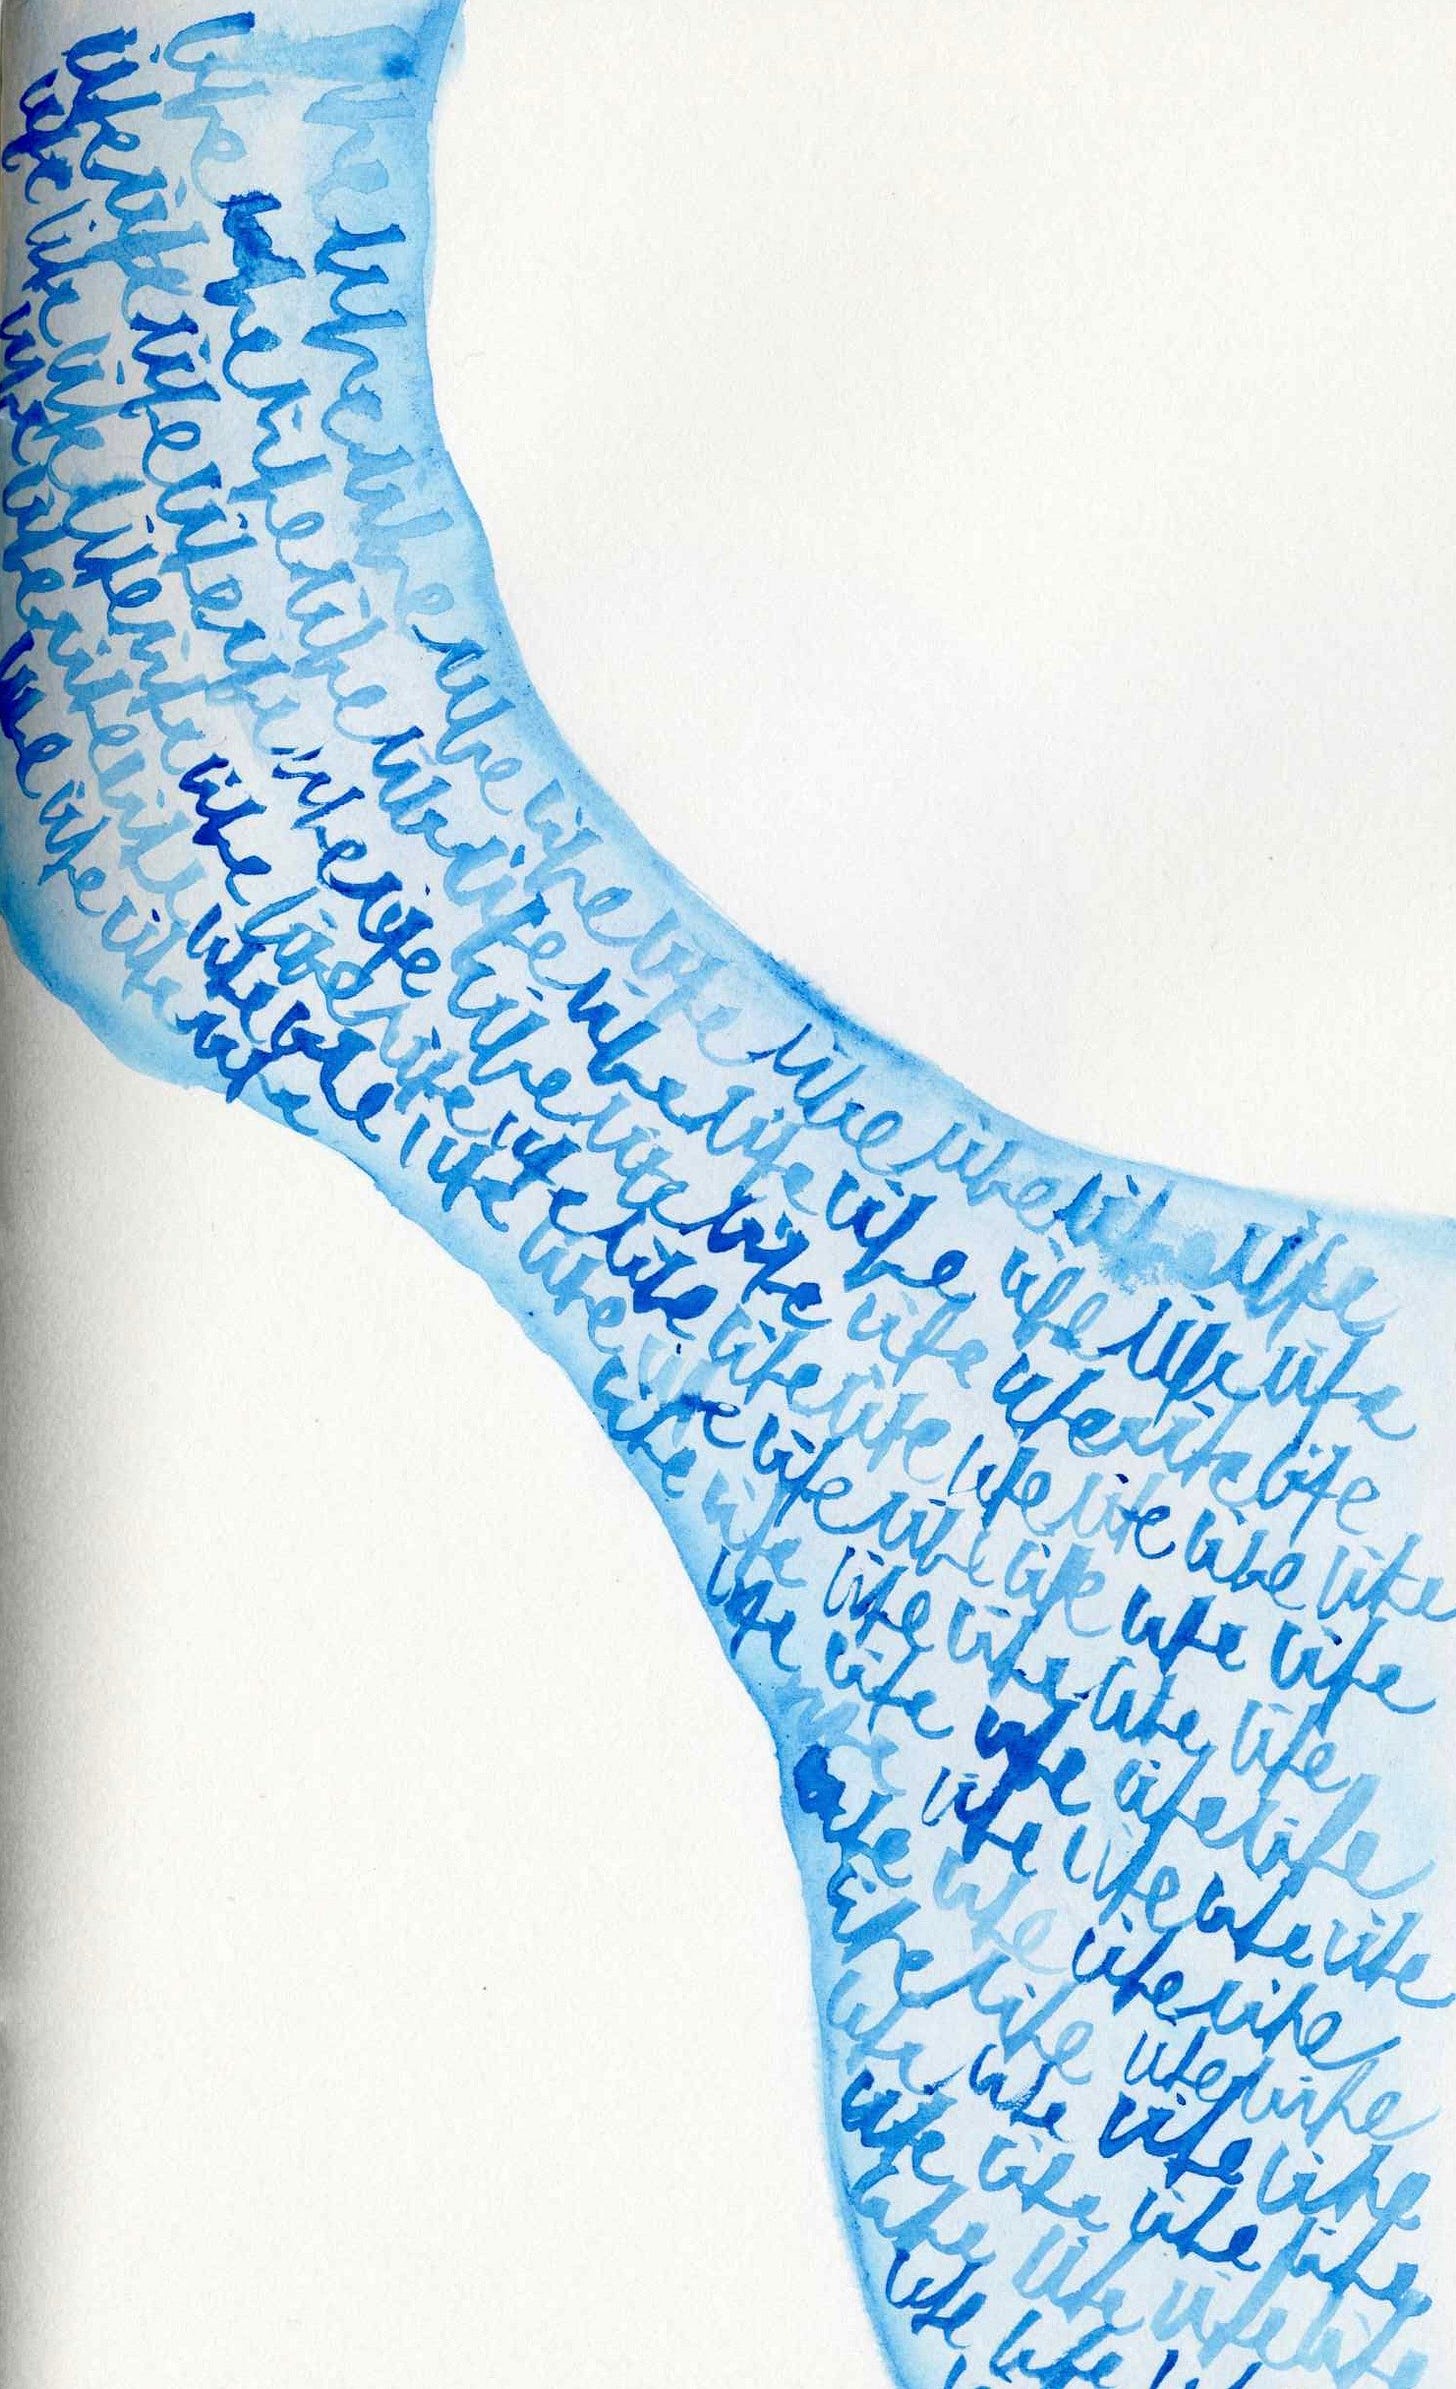 life life life life life life life life life life
life life life life life life life life life life life life
life life life life life life life life life life life life life life
life life life life life life life life life life life life life life life life
life life life life life life life life life life life life life life
life life life life life life life life life life
life life life life life
life life life life life
life life life life
life life life life
life life life life
life life life life
life life life life
life life